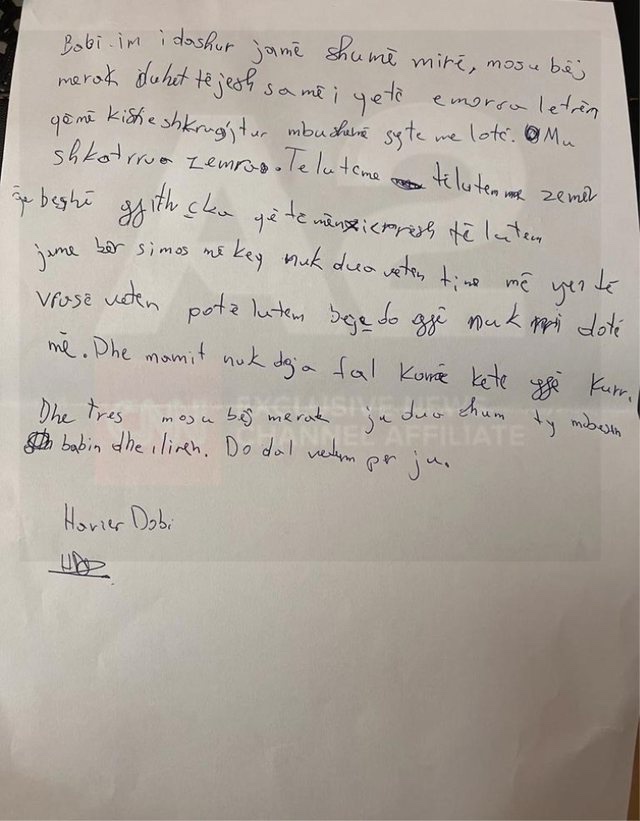 Babi im i dashur jamë shumë mirë, mosu bëj
merak duhet të jesh samë i qetë e morra letrën
që më kishe shkrugjtur mbushenë syte me lotë. Mu
shkatrrua zemra. Te luteme të lutem me zemër
beshë gjith çka që të mën të lutem
jame bër si mos më key nuk dua veten time më yer të
vrasë veten po të lutem beje do gjë nuk dotë
më. Dhe mamit nuk dga fal komë kete gjë kurr.
Dhe tres mosu bëj merak ju dua shum ty mbesen
babin dhe iliren. Do dal vetem per ju.
Harier Dobi
HD
A2
CNN EXCLUSIVE NEWS
CHANNEL AFFILIATE